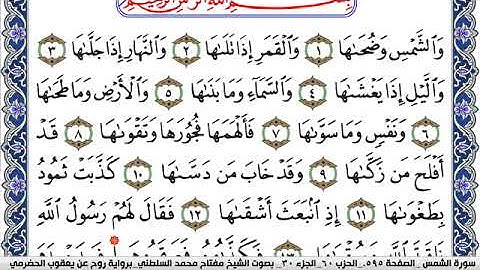 بِسْمِ اللَّهِ الرَّحْمَٰنِ الرَّحِيمِ
وَالشَّمْسِ وَضُحَىٰهَا ١ وَالْقَمَرِ إِذَا تَلَىٰهَا ٢ وَالنَّهَارِ إِذَا جَلَّىٰهَا ٣
وَاللَّيْلِ إِذَا يَغْشَىٰهَا ٤ وَالسَّمَآءِ وَمَا بَنَىٰهَا ٥ وَالْأَرْضِ وَمَا طَحَىٰهَا
٦ وَنَفْسٍ وَمَا سَوَّىٰهَا ٧ فَأَلْهَمَهَا فُجُورَهَا وَتَقْوَىٰهَا ٨ قَدْ
أَفْلَحَ مَن زَكَّىٰهَا ٩ وَقَدْ خَابَ مَن دَسَّىٰهَا ١٠ كَذَّبَتْ ثَمُودُ
بِطَغْوَىٰهَا ١١ إِذِ انۢبَعَثَ أَشْقَىٰهَا ١٢ فَقَالَ لَهُمْ رَسُولُ اللَّهِ
نَاقَةَ اللَّهِ
سورة الشمس _ الصفحة ٥٩٥ _ الحزب ٦٠ _ الجزء ٣٠ _ بصوت الشيخ مفتاح محمد السلطني _ برواية روح عن يعقوب الحضرمي